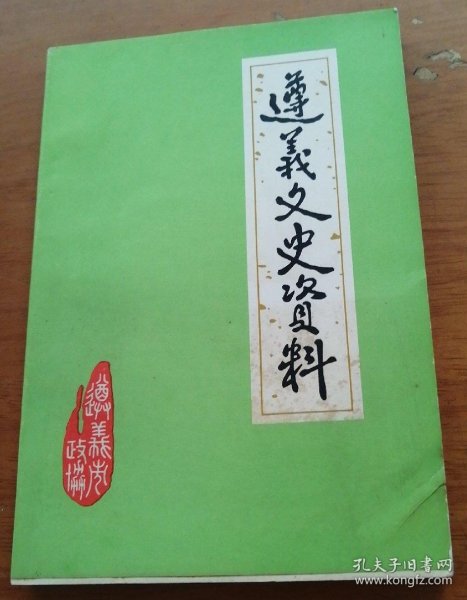 遵義文史資料
遵義市
政協
孔夫子旧书网
www.kongfz.com